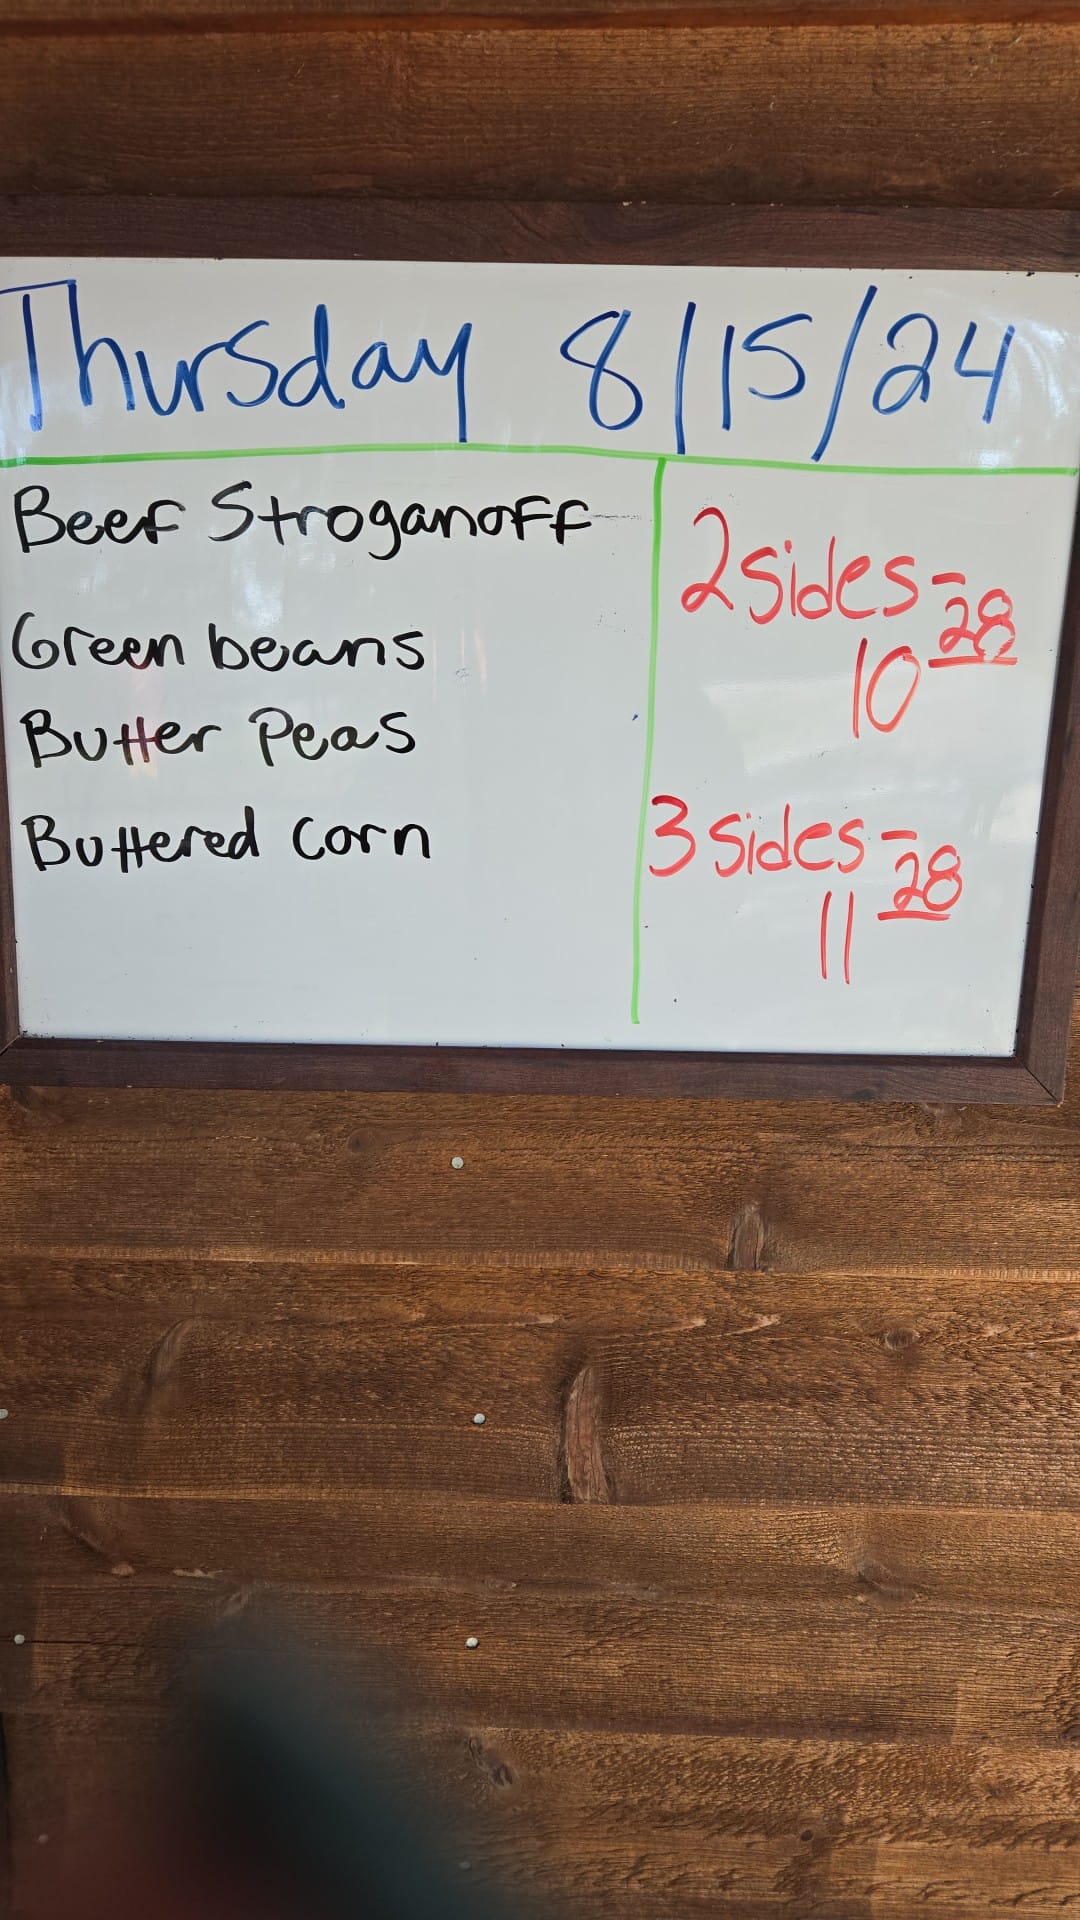 Thursday 8/15/24
Beef Stroganoff
Green beans
Butter Peas
Buttered Corn
2 sides-
10 28
3 sides-
11 28